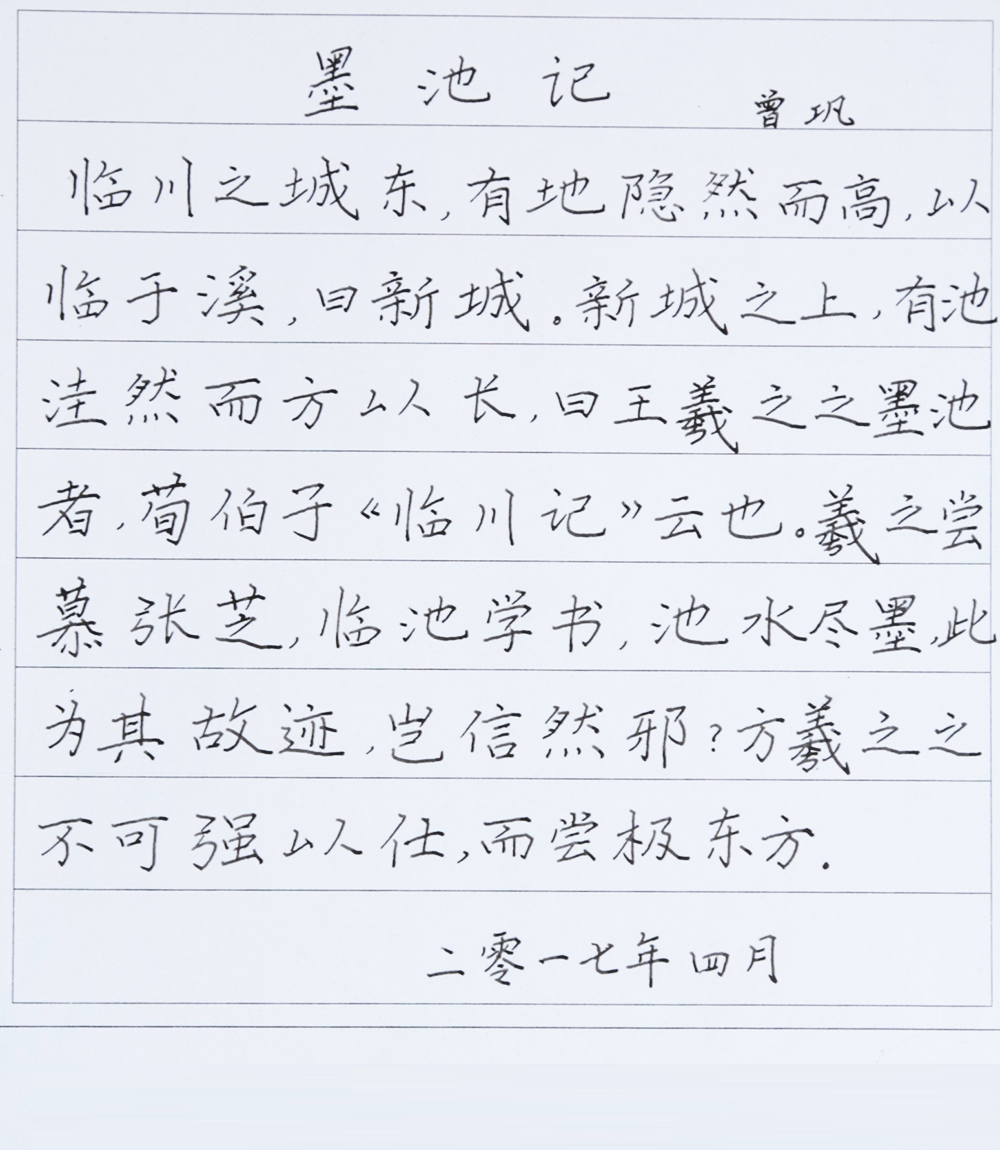 墨池记
曾巩
临川之城东,有地隐然而高,以
临于溪,曰新城。新城之上,有池
洼然而方以长,曰王羲之之墨池
者,荀伯子《临川记》云也。羲之尝
慕张芝,临池学书,池水尽墨,此
为其故迹,岂信然邪?方羲之之
不可强以仕,而尝极东方.
二零一七年四月